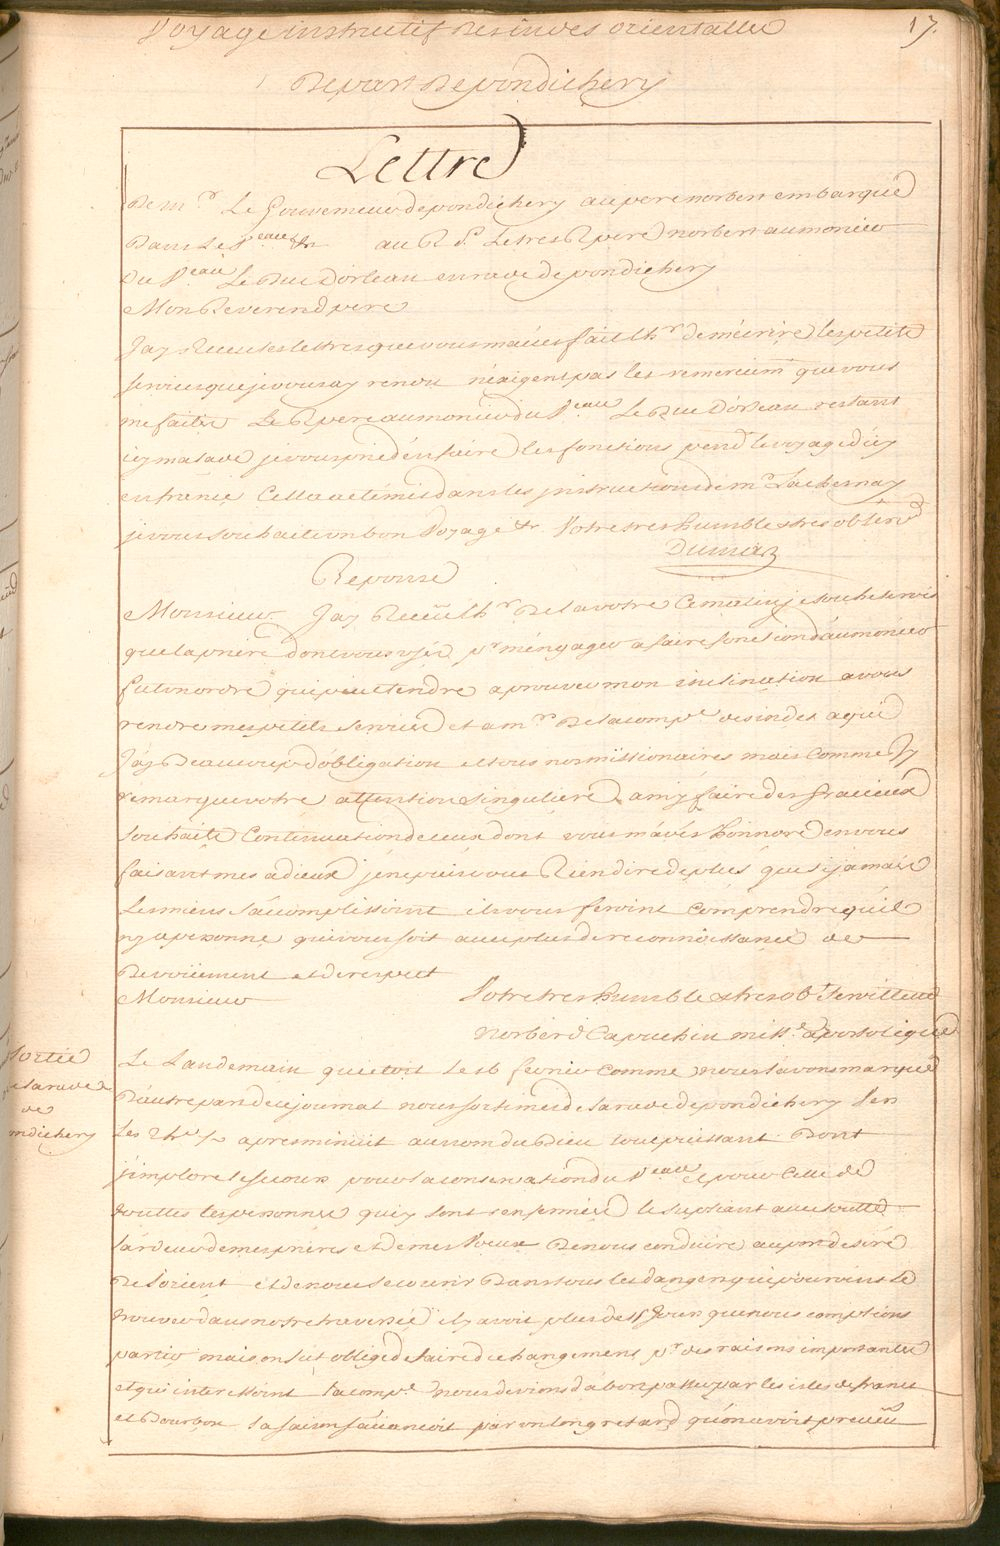 Voyage instructif Des indes orientalles
17.
Depart De pondichery
Lettre
De mr. Le Gouverneur de pondichery au pere norbert embarqué
Dans Le Veau &c au R P. Le tres R pere norbert aumonier
Du Veau Le Duc D'orleau en rade de pondichery
Mon Reverend pere
J'ay Receu les lettres que vous m'avés fait lhr de m'écrire les petits
services que je vous ay rendu n'éxigent pas les remercimt que vous
me faites Le R pere aumonier du Veau Le Duc D'orleau restant
icy malade je vous prie d'en faire les fonctions pendt le voyage d'icy
en france Cella a eté mis dans les jnstructions de mr Lachesnay
je vous souhaite un bon Voyage &c Votre tres humble & tres obeïs
Dumas
Reponse
Monsieur J'ay Receü lhr De la votre Ce matin je souhaiterois
que la priere dont vous usés pr m'éngager a faire fonction d'aumonier
fut un ordre qui peut tendre a prouver mon inclination a vous
rendre mes petits services et a mrs De la compe des indes a qui
J'ay Beaucoup d'óbligation et tous nos missionaires mais comme Jy
remarque votre attention singuliere a m'y faire des gracieux
souhaits Continuation de ceux dont vous m'avés honnoré en vous
faisant mes adieux je ne puis vous Rien dire de plus que si jamais
Les miens s'áccomplissoint ils vous feroint comprendre qu'il
n'y a personne qui vous soit avec plus de reconnoissance de
Devoüement et de respect
Monsieur Votre tres humble & tres obt serviteur
norbert Capuchin misse apostolique
Sortie
de la rade
de
pondichery
Le Landemain qui etoit le 16 fevrier comme nous l'avons marqué
D'áutre part de ce journal nous sortimes de la rade de pondichery
Les 2 hes ½ apres minuit au nom du Dieu tout puissant Dont
j'implore le secours pour la conservation du Veau et pour Celle de
touttes les personnes qui y sont renfermées le supliant avec toutte
l'árdeur de mes prieres et de mes Voeux De nous conduire au port desiré
De l'orient et de nous secourir Dans tous les dangers qui pouroins se
trouver dans notre traversée il y avoit plus de 15 Jours que nous comptions
partir mais on fut obligé de faire du changement pr des raisons importantes
et qui interessoint la compe nous devions d'abor passer par les isles de france
et Bourbon la saison s'ávancoit par un long retard qu'on avoit preveü